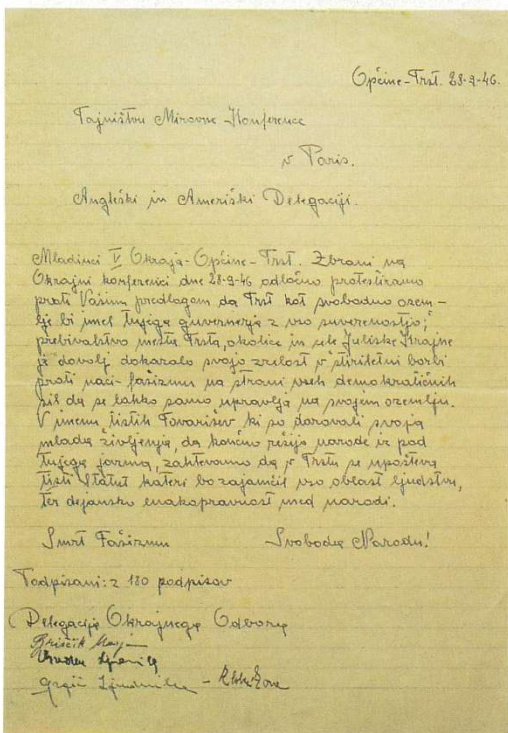 Opčine-Trst. 28-9-46.
Tajništvu Mirovne Konference
v Paris.
Angleški in Ameriški Delegaciji.
Mladinci V Okraja-Opčine-Trst. Zbrani na
Okrajni konferenci dne 28-9-46 odločno protestiramo
proti Vašim predlogom da Trst kot svobodno ozem-
lje bi imel tujega guvernerja z vso suverenostjo;
prebivalstvo mesta Trsta, okolice in cele Juliske Krajne
je dovolj dokazalo svojo zrelost v štiriletni borbi
proti naci-fašizmu na strani vseh demokratičnih
sil da se lahko samo upravlja na svojem ozemlju.
V imenu tistih tovarišev ki so darovali svoja
mlada življenja, da končno rešijo narode iz pod
tujega jarma, zahtevamo da v Trstu se upošteva
tisti Statut kateri bo zajamčil vso oblast ljudstvu,
ter dejansko enakopravnost med narodi.
Smrt Fašizmu Svoboda Narodu!
Podpisani: z 180 podpisov
Delegacija Okrajnega Odbora
Briščik
Grgič Ljudmila -